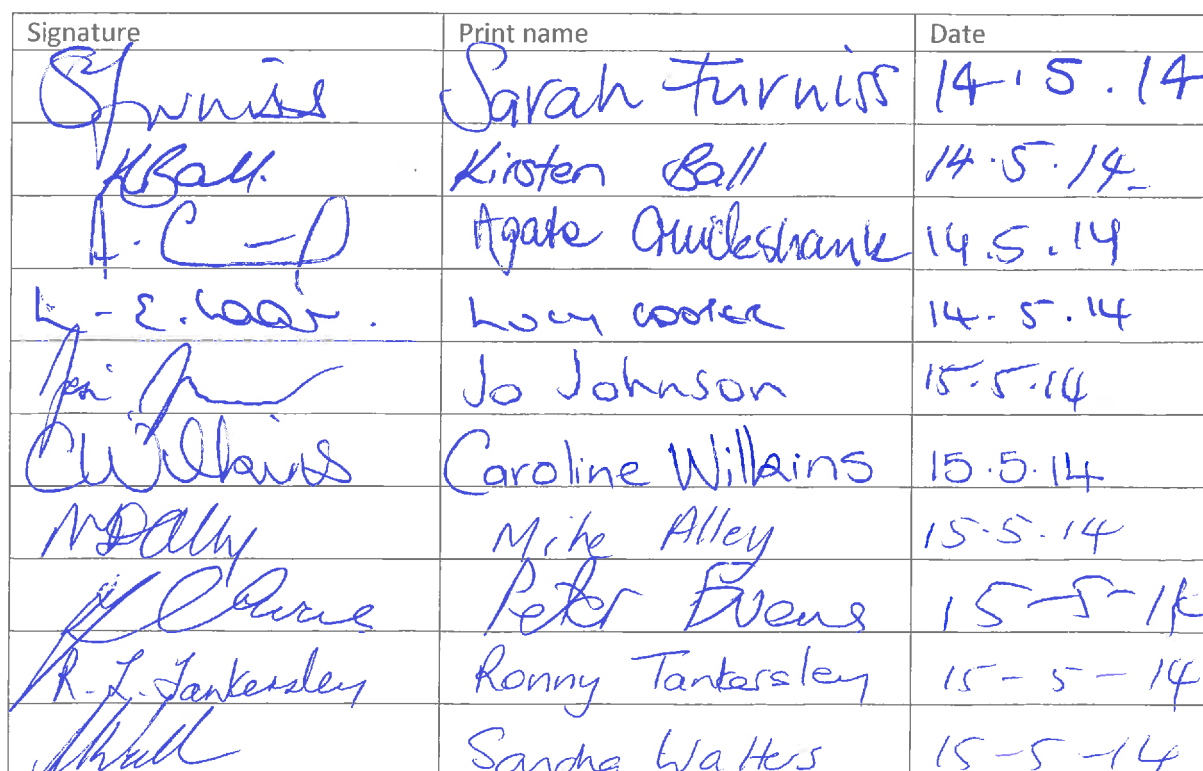 Signature Print name Date
SFurniss Sarah Furniss 14.5.14
KBall. Kirsten Ball 14.5.14
A. Agata Cruickshank 14.5.14
L-E. Lucy cooker 14.5.14
Jo Johnson 15.5.14
CWilkins Caroline Wilkins 15.5.14
Mike Alley 15.5.14
Peter Evens 15-5-14
R.L.Tankersley Ronny Tankersley 15-5-14
Sandra Walters 15-5-14